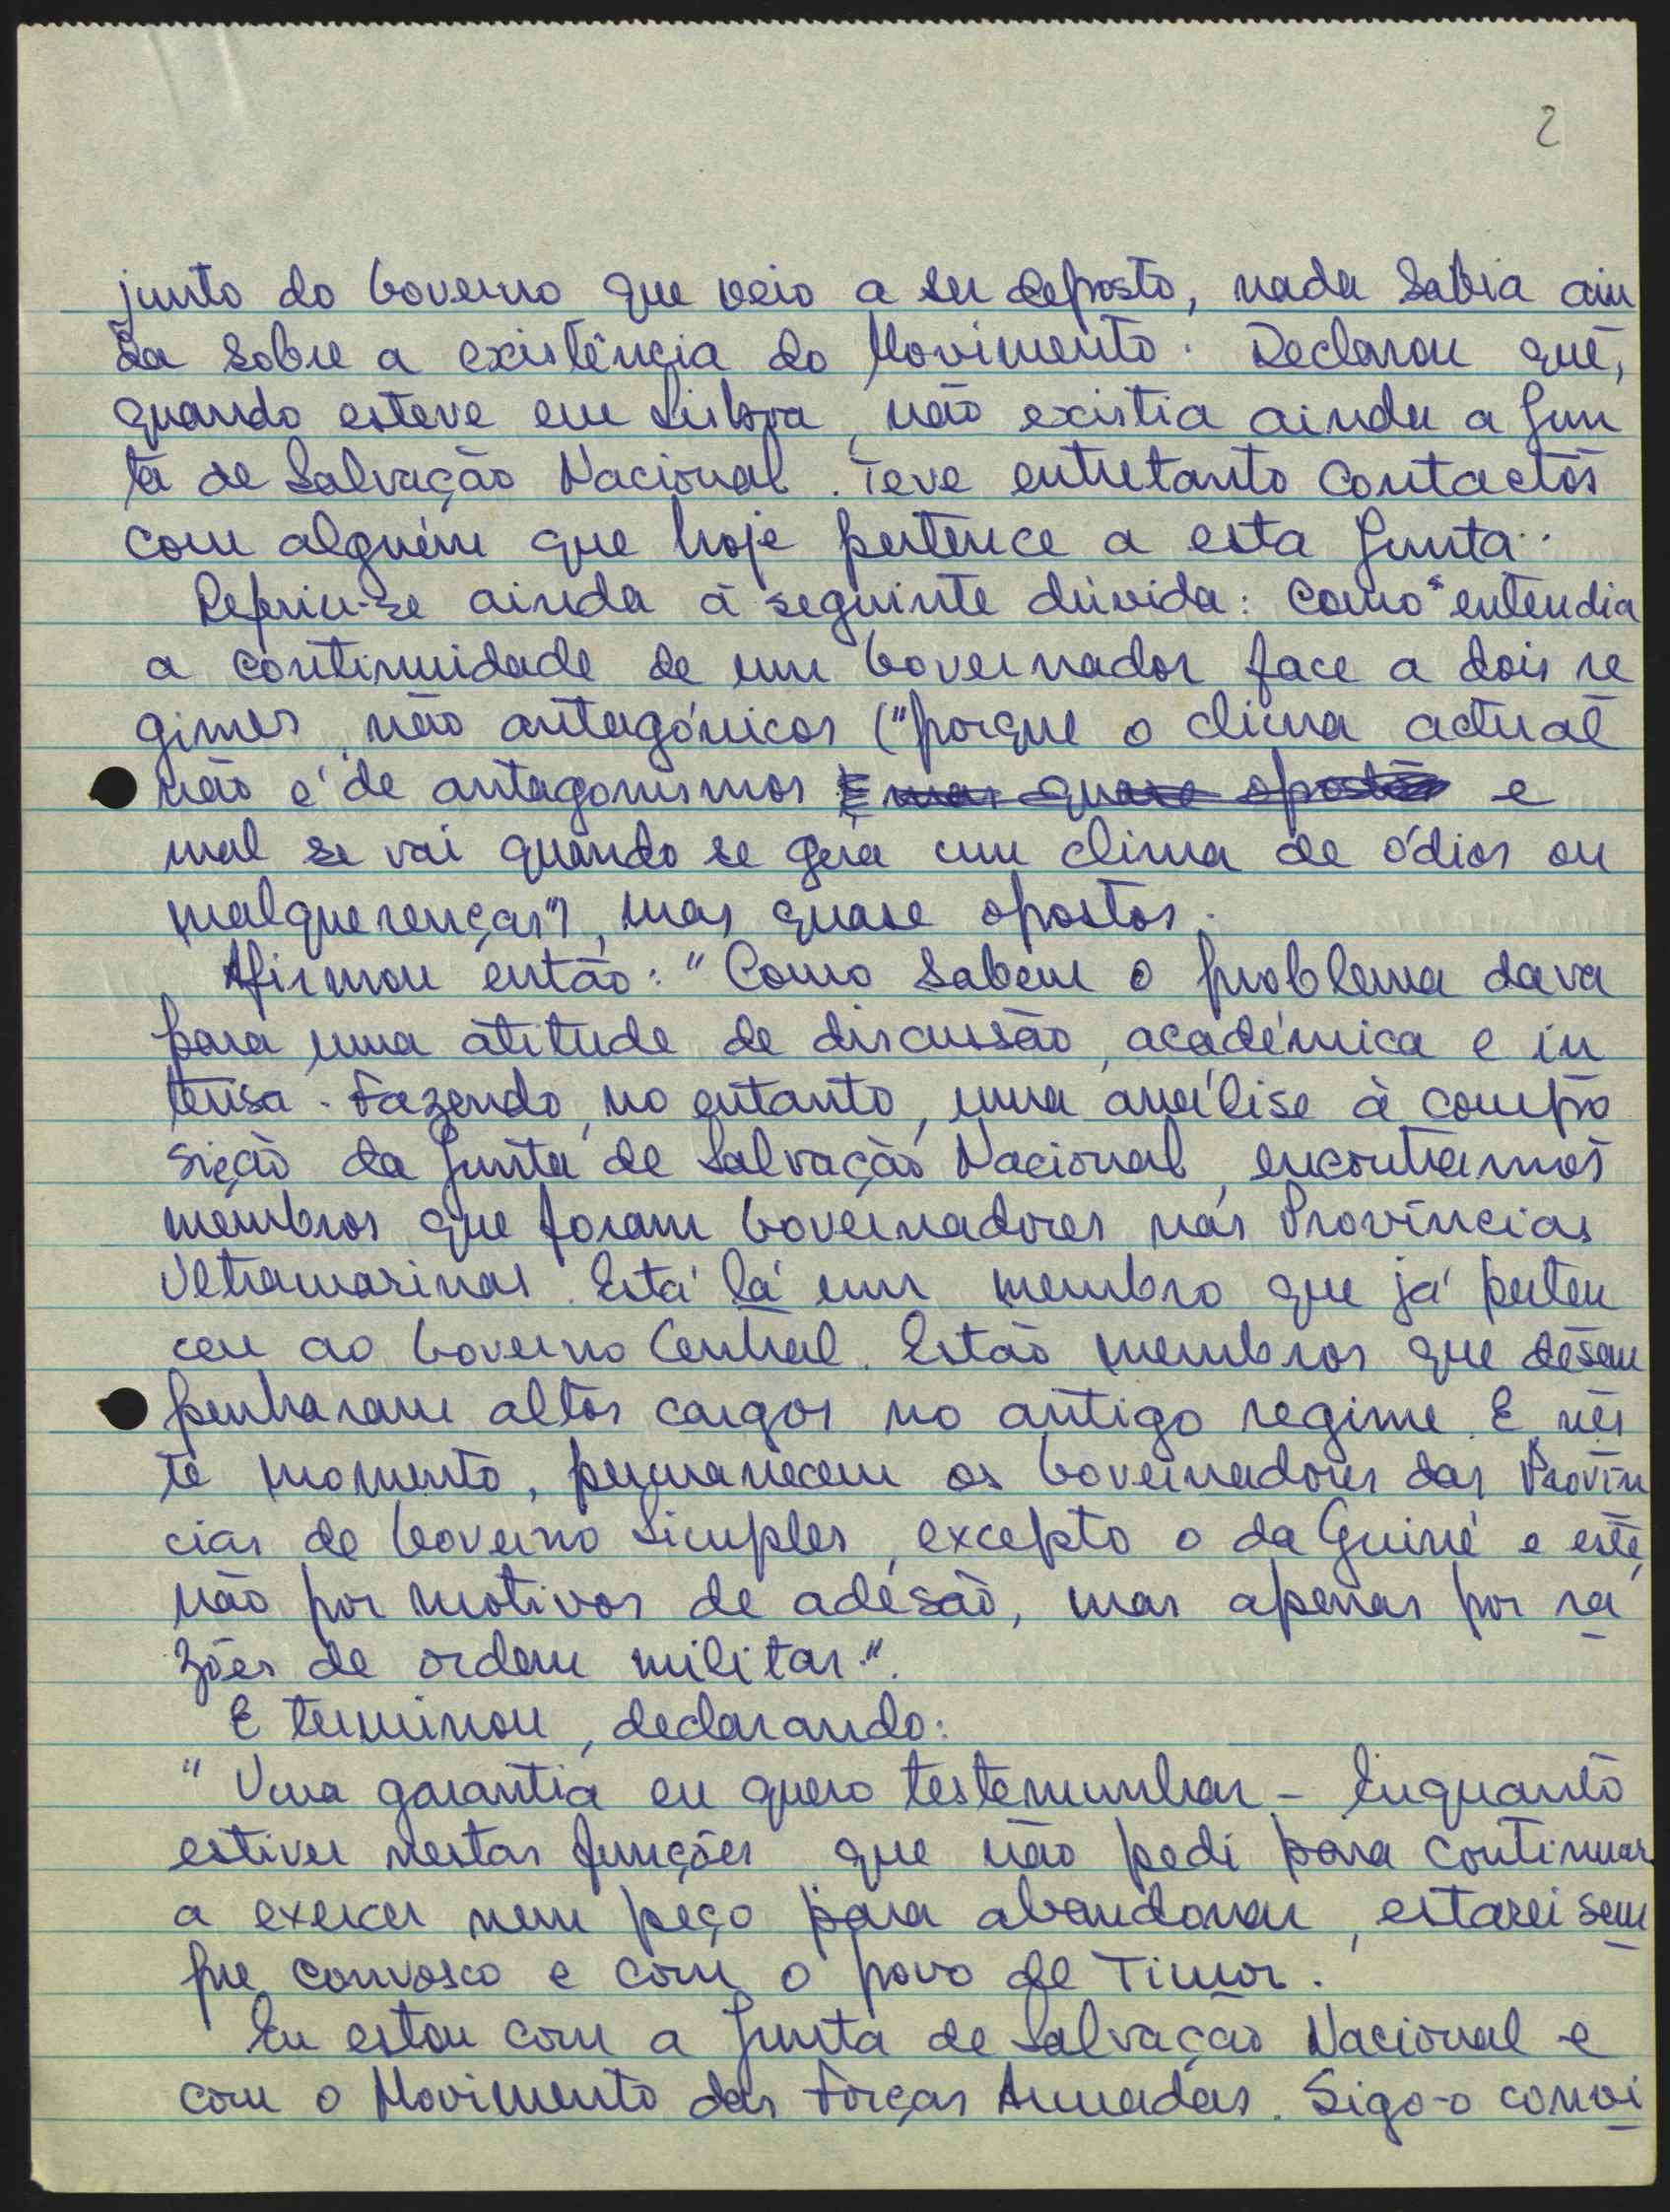 2
junto do Governo que veio a ser deposto, nada sabia ain
da sobre a existência do Movimento. Declarou que,
quando esteve em Lisboa, não existia ainda a Jun
ta de Salvação Nacional. Teve entretanto contactos
com alguém que hoje pertence a esta Junta.
Referiu-se ainda à seguinte dúvida: Como entendia
a continuidade de um Governador face a dois re
gimes, não antagónicos ("porque o clima actual
não é de antagonismos E mas quase opostos e
mal se vai quando se gera um clima de ódios ou
malquerenças"), mas quase opostos.
Afirmou então: "Como sabem o problema dava
para uma atitude de discussão, académica e in
tensa. Fazendo, no entanto, uma análise à compo
sição da Junta de Salvação Nacional, encontramos
membros que foram Governadores nas Províncias
Ultramarinas. Está lá um membro que já perten
ceu ao Governo Central. Estão membros que desem
penharam altos cargos no antigo regime. E nes
te momento, permanecem os Governadores das Provín
cias de Governo Simples, excepto o da Guiné e este,
não por motivos de adesão, mas apenas por ra
zões de ordem militar".
E terminou, declarando:
"Uma garantia eu quero testemunhar - Enquanto
estiver nestas funções que não pedi para continuar
a exercer nem peço para abandonar, estarei sem
pre convosco e com o povo de Timor.
Eu estou com a Junta de Salvação Nacional e
com o Movimento das Forças Armadas. Sigo-o convi